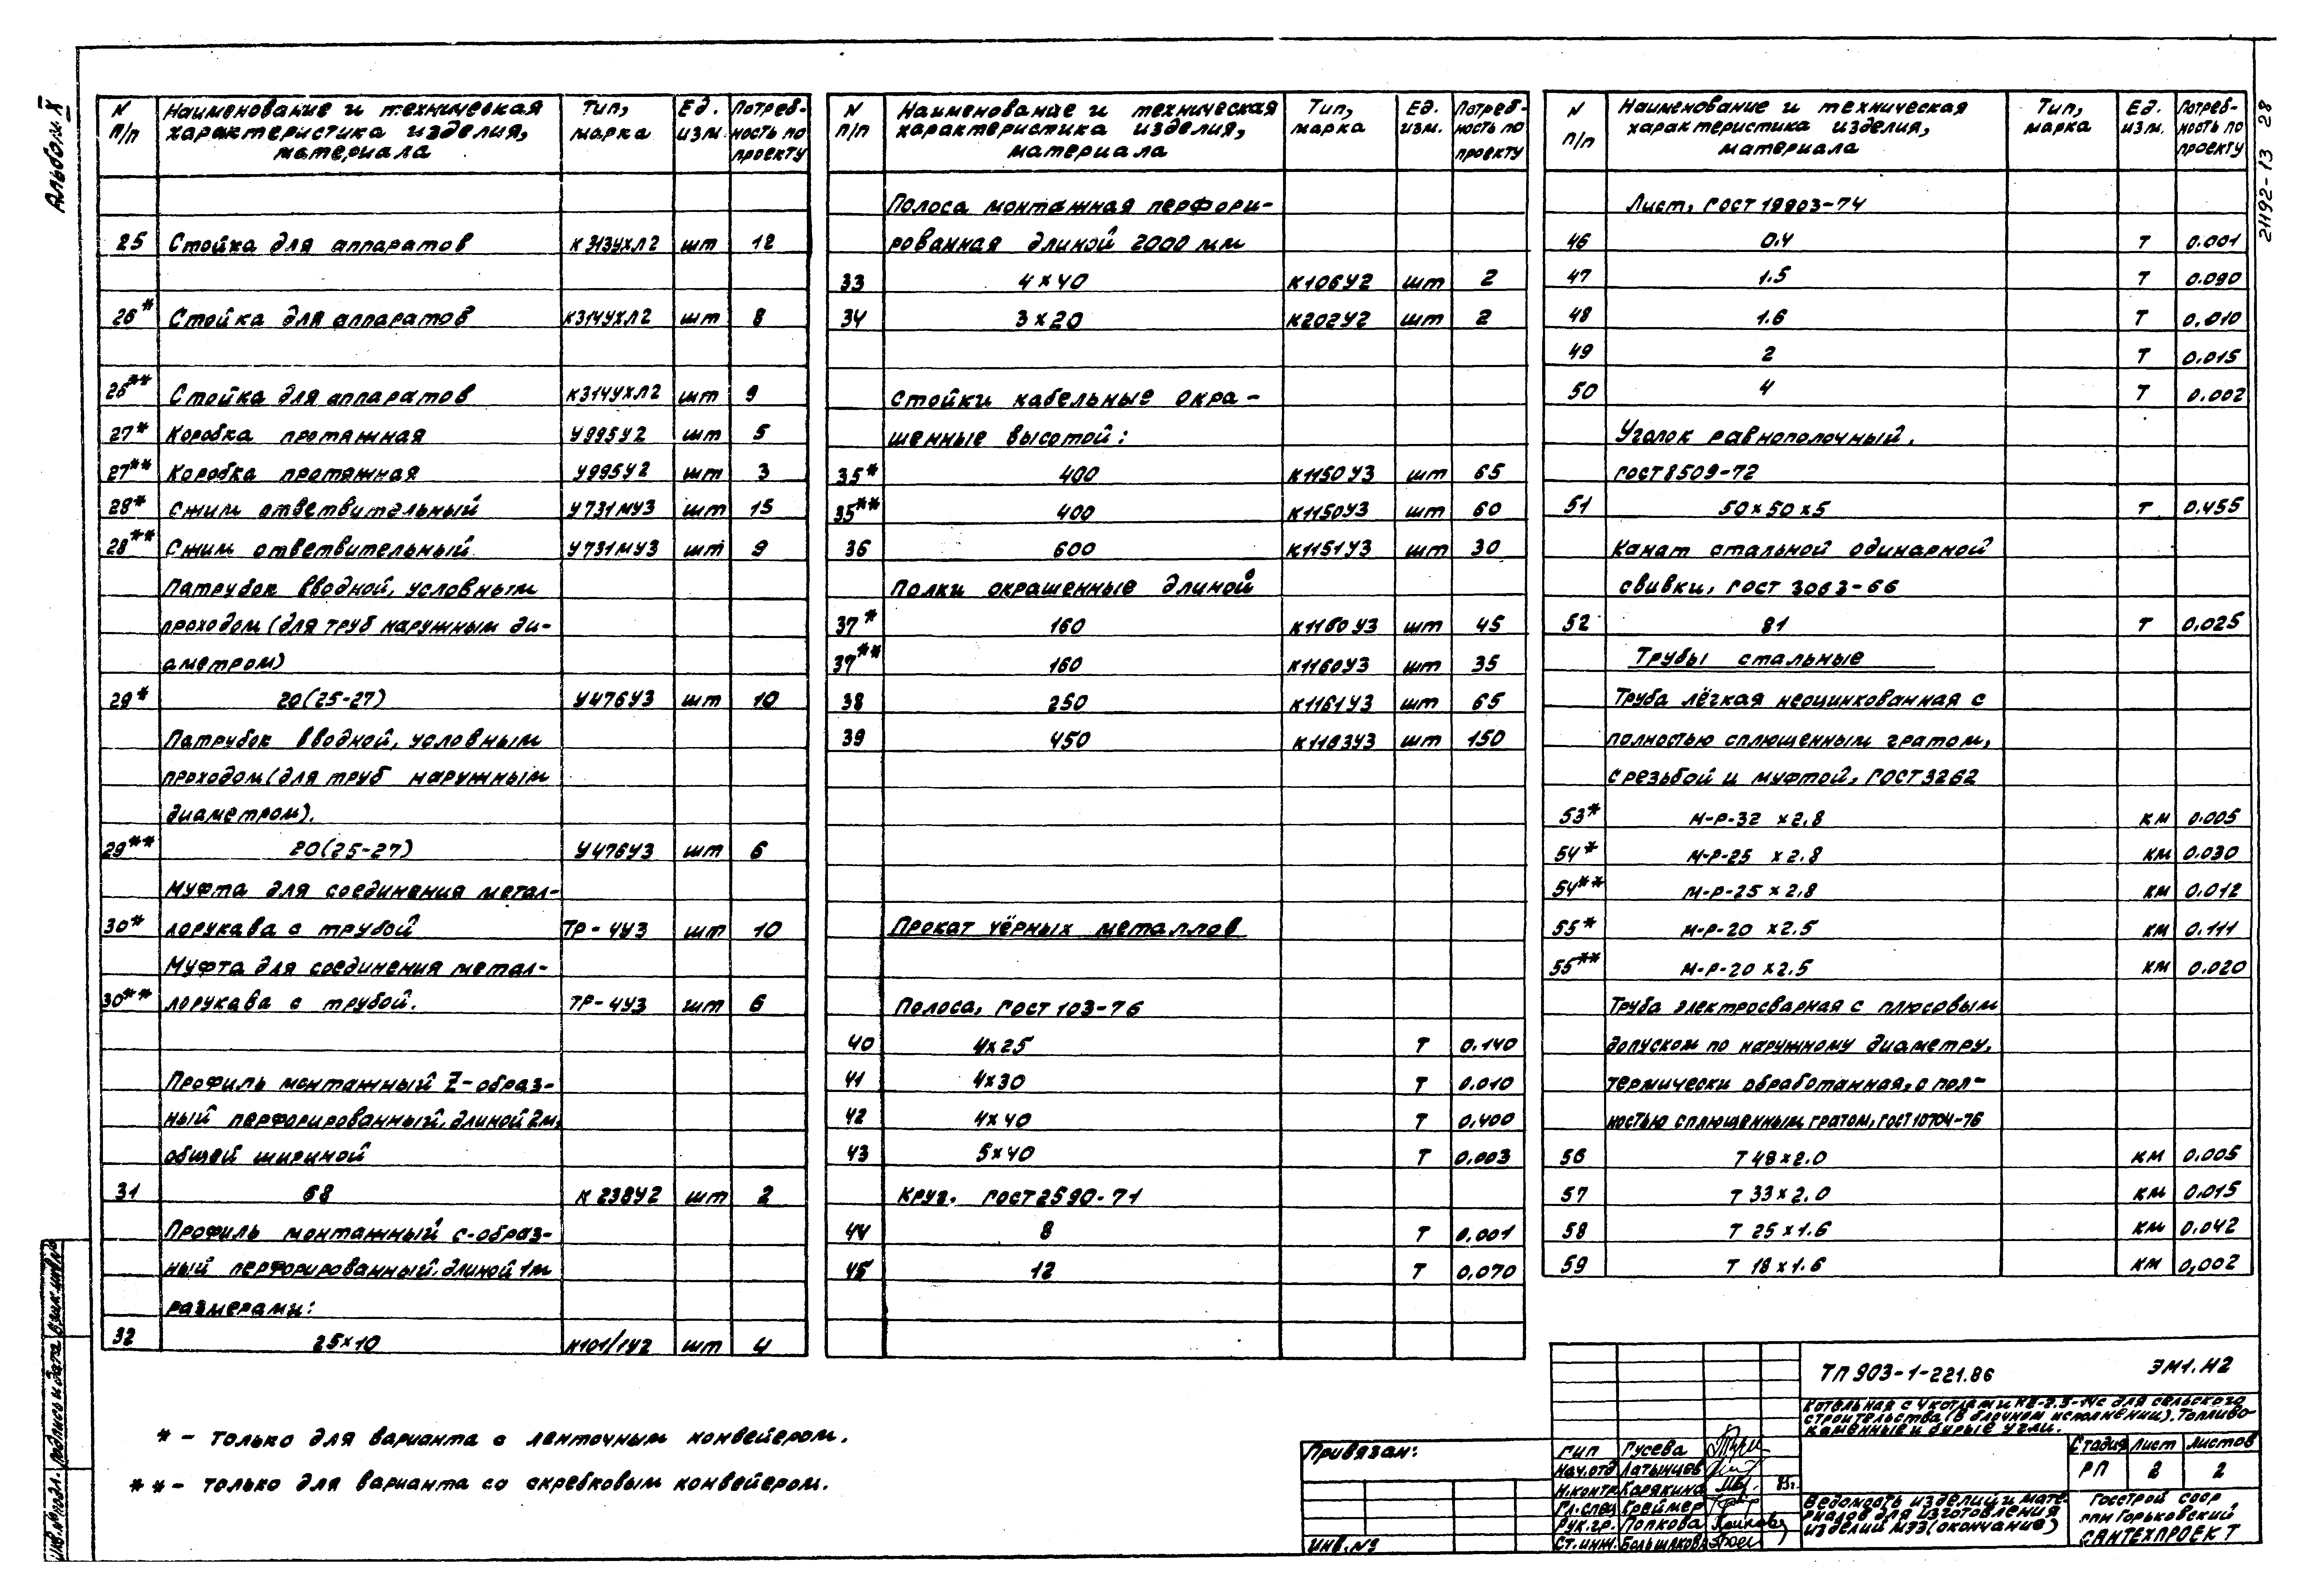 Альбом X
21192-13 28
N п/п | Наименование и техническая характеристика изделия, материала | Тип, марка | Ед. изм. | Потреб-ность по проекту
25 Стойка для аппаратов К313УХЛ2 шт 12
26* Стойка для аппаратов К314УХЛ2 шт 8
26** Стойка для аппаратов К314УХЛ2 шт 9
27* Коробка протяжная У995У2 шт 5
27** Коробка протяжная У995У2 шт 3
28* Сжим ответвительный У731МУ3 шт 15
28** Сжим ответвительный У731МУ3 шт 9
Патрубок вводной, условным
проходом (для труб наружным ди-
аметром)
29* 20(25-27) У476У3 шт 10
Патрубок вводной, условным
проходом (для труб наружным
диаметром).
29** 20(25-27) У476У3 шт 6
Муфта для соединения метал-
30* лорукава с трубой ТР-4У3 шт 10
Муфта для соединения метал-
30** лорукава с трубой. ТР-4У3 шт 6
Профиль монтажный Z-образ-
ный перфорированный, длиной 2м,
общей шириной
31 68 К238У2 шт 2
Профиль монтажный с-образ-
ный перфорированный, длиной 1м
размерами:
32 25×10 К101/1У2 шт 4
N п/п | Наименование и техническая характеристика изделия, материала | Тип, марка | Ед. изм. | Потреб-ность по проекту
Полоса монтажная перфори-
рованная длиной 2000 мм
33 4×40 К106У2 шт 2
34 3×20 К202У2 шт 2
Стойки кабельные окра-
шенные высотой:
35* 400 К1150У3 шт 65
35** 400 К1150У3 шт 60
36 600 К1151У3 шт 30
Полки окрашенные длиной
37* 160 К1160У3 шт 45
37** 160 К1160У3 шт 35
38 250 К1161У3 шт 65
39 450 К1163У3 шт 150
Прокат чёрных металлов
Полоса, ГОСТ 103-76
40 4×25 Т 0.140
41 4×30 Т 0.010
42 4×40 Т 0.400
43 5×40 Т 0.003
Круг. ГОСТ 2590-71
44 8 Т 0.001
45 12 Т 0,070
N п/п | Наименование и техническая характеристика изделия, материала | Тип, марка | Ед. изм. | Потреб-ность по проекту
Лист, ГОСТ 19903-74
46 0.4 Т 0.001
47 1.5 Т 0.090
48 1.6 Т 0.010
49 2 Т 0.015
50 4 Т 0.002
Уголок равнополочный,
ГОСТ 8509-72
51 50×50×5 Т 0.455
Канат стальной одинарной
свивки, ГОСТ 3063-66
52 81 Т 0.025
Трубы стальные
Труба лёгкая неоцинкованная с
полностью сплющенным гратом,
с резьбой и муфтой, ГОСТ 3262
53* М-Р-32 ×2.8 км 0.005
54* М-Р-25 ×2.8 км 0.030
54** М-Р-25×2.8 км 0.012
55* М-Р-20 ×2.5 км 0.111
55** М-Р-20×2.5 км 0.020
Труба электросварная с плюсовым
допуском по наружному диаметру,
термически обработанная, с пол-
ностью сплющенным гратом, ГОСТ 10704-76
56 Т 48×2.0 км 0.005
57 Т 33×2.0 км 0.015
58 Т 25×1.6 км 0.042
59 Т 18×1.6 км 0,002
* - только для варианта с ленточным конвейером.
** - только для варианта со скребковым конвейером.
Привязан:
Инв. №
ГИП Гусева
Нач.отд Латынцев
Н.контр Карякина 85г.
Гл.спец Креймер
Рук.гр. Попкова
Ст.инж. Большакова
ТП 903-1-221.86 ЭМ1.И2
Котельная с 4 котлами КЕ-2.5-14с для сельского
строительства (в блочном исполнении). Топливо-
каменные и бурые угли.
Стадия Лист Листов
РП 2 2
Ведомость изделий и мате-
риалов для изготовления
изделий МЭЗ (окончание)
Госстрой СССР
ГПИ Горьковский
САНТЕХПРОЕКТ
Инв.№ подл. Подпись и дата Взам.инв.№